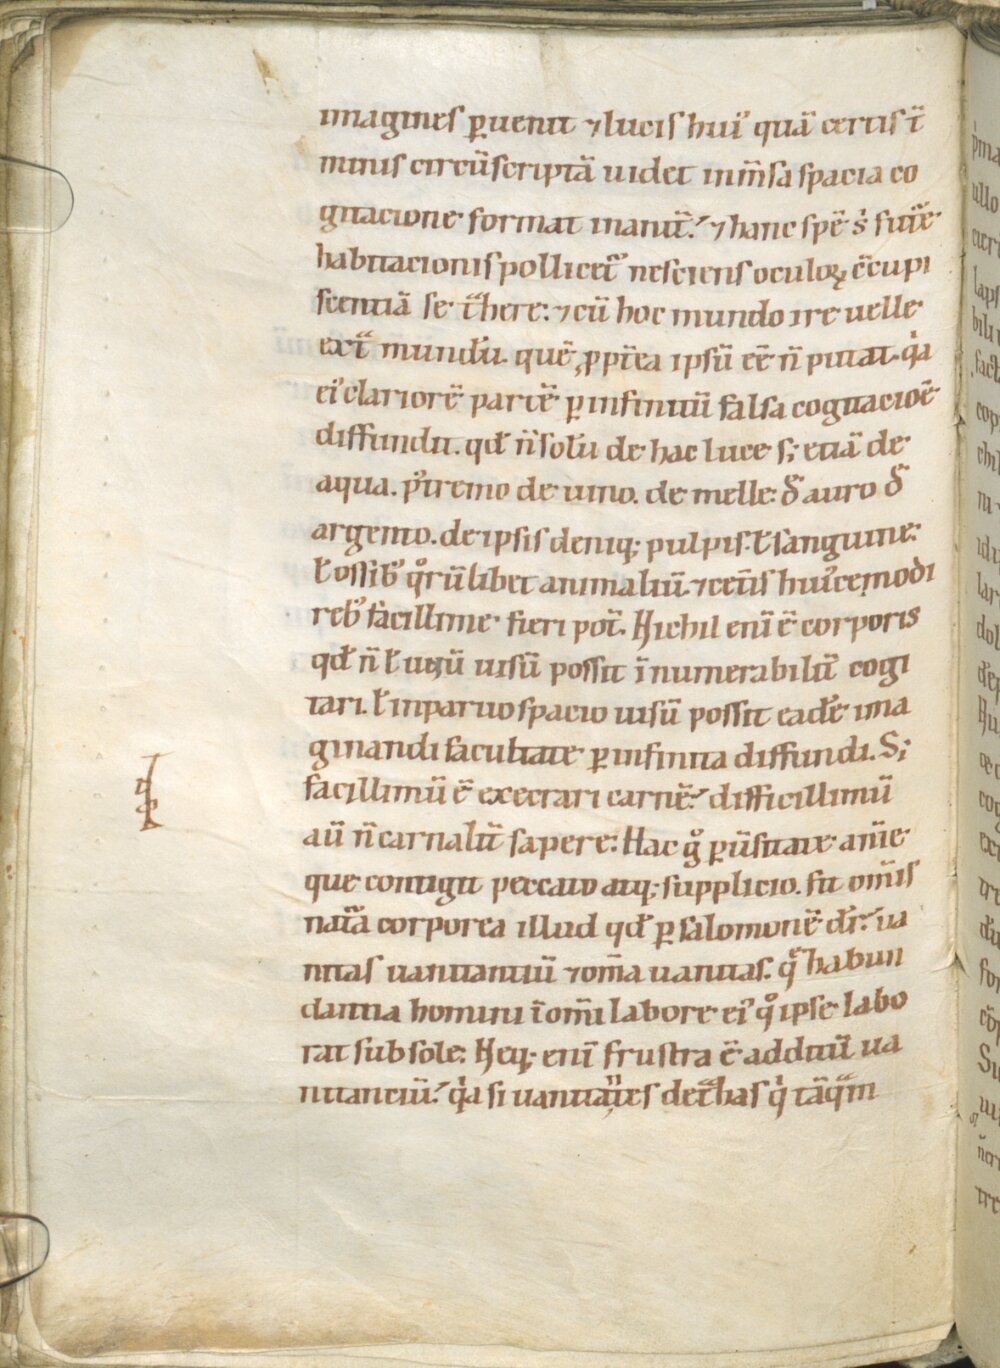 imagines ꝑuenit ⁊ lucis hui᷒ quā certis t̄
minis circūscriptā uidet inm̄sa spacia co
gitacione format inanit̄. ⁊ hanc spē s᷒ fut᷒e
habitacionis pollicet᷒ nesciens oculoꝝ c̄cupi
scentiā se t᷒here: ⁊ cū hoc mundo ire uelle
ext᷒ mundū. quē ꝓpt̄ea ipsū eē n̄ putat. q᷒a
ei᷒ clariorē partē ꝑ infinitū falsa cogitacioē
diffundit. qđ n̄ solū de hac luce s; etiā de
aqua. p᷒tremo de uino. de melle: đ auro đ
argento. de ipsis deniq; pulpis. ł sanguine:
ł ossib᷒ q᷒rūlibet animaliū. ⁊ cet̄is hui᷒cemodi
reb᷒ facillime fieri pot̄. Nichil eni ē corporis
qđ n̄ ł unū uisū possit īnumerabilit̄ cogi
tari. ł inparuo spacio uisū possit eadē ima
ginandi facultate ꝑ infinita diffundi. S;
facillimū ē execrari carnē. difficillimū
aū n̄ carnalit̄ sapere: Hac g᷒ ꝑūsitate anīe
que contigit peccato atq; supplicio. fit om̄is
nat᷒a corporea illud qđ ꝑ salomonē dr̄. ua
nitas uanitantiū ⁊ om̄a uanitas. q̄ habun
dantia homini ī om̄i labore ei᷒ q᷒ ipse labo
rat sub sole: Neq; enī frustra ē additū ua
nitanciū. q᷒a si uanitantes det᷒has q᷒ tāq᷒m